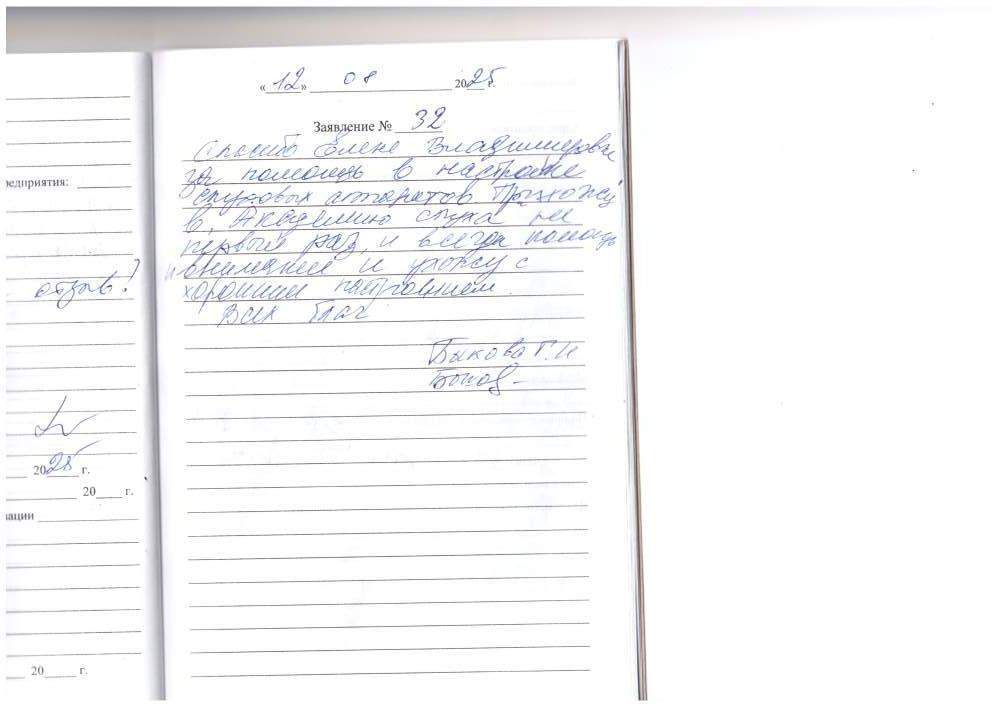 «12» 08 2025 г.
Заявление № 32
Спасибо Елене Владимировне
за помощь в настройке
слуховых аппаратов. Прихожу
в Академию слуха не
первый раз, и всегда помощь
и внимание и ухожу с
хорошим настроением.
Всех благ
Быкова Г.И
едприятия:
отзыв!
2025 г.
20 г.
зации
20 г.